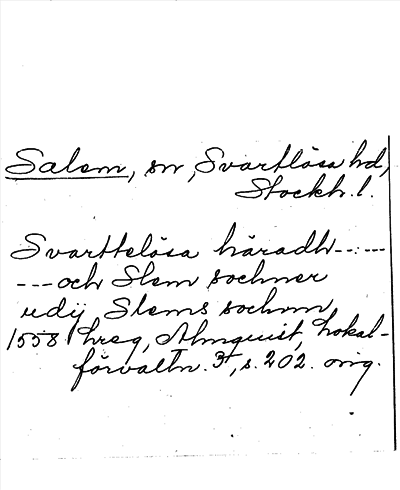 Salem, sn, Svartlösa hd,
Stockh. l.
Svarttelösa häradh -----
--- och Slem sochner
udij Slems sochnn
1558 hreg, Almquist, Lokal-
förvaltn. 3, s. 202. orig.